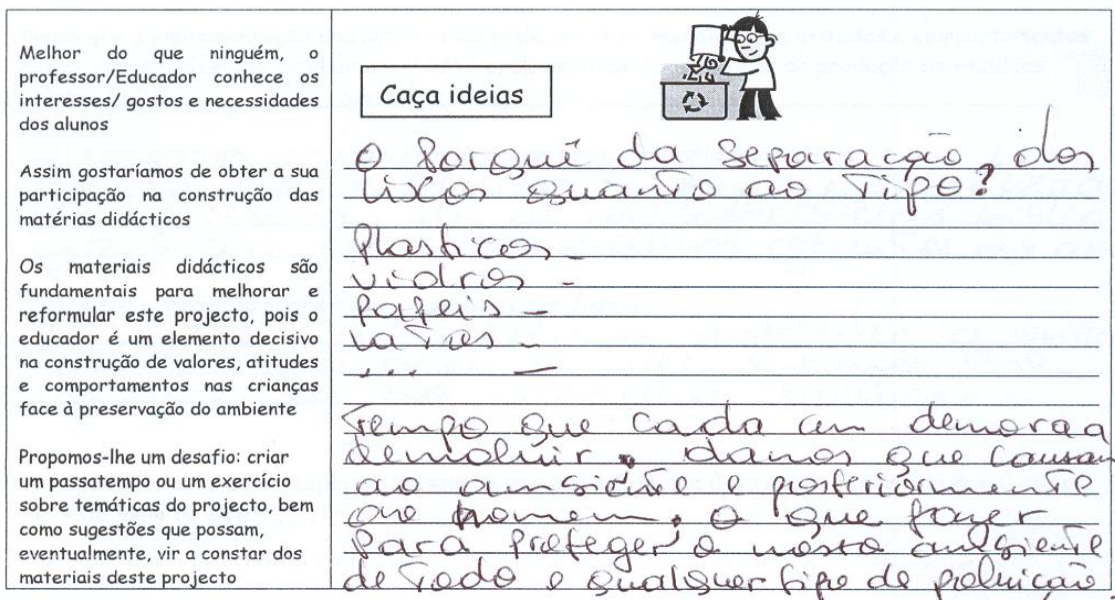 Melhor do que ninguém, o
professor/Educador conhece os
interesses/ gostos e necessidades
dos alunos
Assim gostaríamos de obter a sua
participação na construção das
matérias didácticos
Os materiais didácticos são
fundamentais para melhorar e
reformular este projecto, pois o
educador é um elemento decisivo
na construção de valores, atitudes
e comportamentos nas crianças
face à preservação do ambiente
Propomos-lhe um desafio: criar
um passatempo ou um exercício
sobre temáticas do projecto, bem
como sugestões que possam,
eventualmente, vir a constar dos
materiais deste projecto
Caça ideias
O Porquê da Separação, dos
lixos quanto ao Tipo?
Plasticos -
vidros -
Papeis -
Latas -
... -
Tempo que cada um demora a
demoluir, danos que causam
ao ambiente e posteriormente
ao homem. O que fazer
Para Proteger o nosso ambiente
de todo e qualquer tipo de poluição.